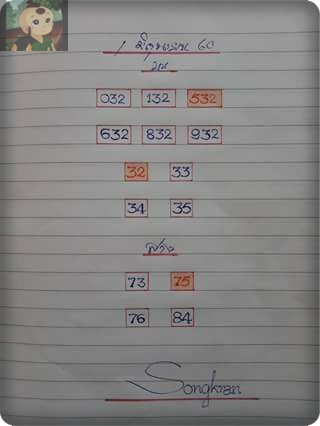 1 มิถุนายน 60
บน
032 132 532
632 832 932
32 33
34 35
ล่าง
73 75
76 84
Songkran